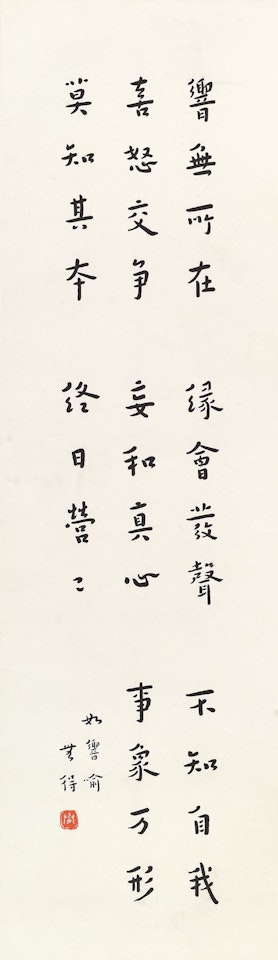 響無所在 縁會發聲 不知自我
喜怒交争 妄和真心 事象万形
莫知其夲 終日營〻
如響喻
無得